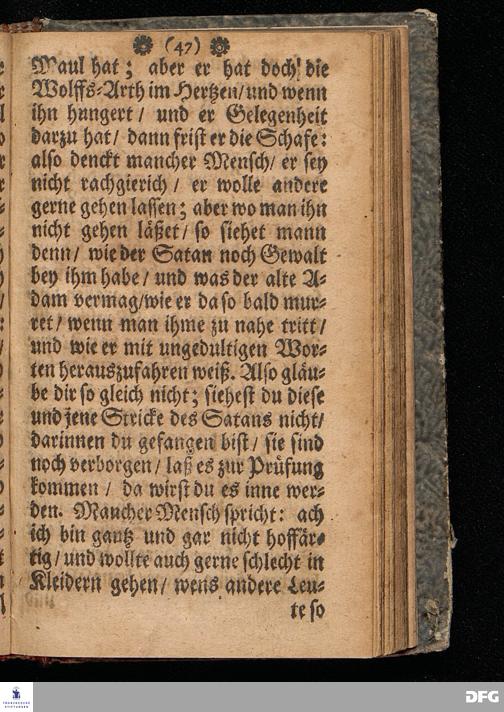 (47)
Maul hat; aber er hat doch die
Wolffs-Arth im Hertzen/und wenn
ihn hungert/ und er Gelegenheit
darzu hat/ dann frist er die Schafe:
also denckt mancher Mensch/ er sey
nicht rachgierich/ er wolle andere
gerne gehen lassen; aber wo man ihn
nicht gehen läßet/ so siehet mann
denn/ wie der Satan noch Gewalt
bey ihm habe/ und was der alte A-
dam vermag/wie er da so bald mur-
ret/ wenn man ihme zu nahe tritt/
und wie er mit ungedultigen Wor-
ten herauszufahren weiß. Also gläu-
be dir so gleich nicht; siehest du diese
und jene Stricke des Satans nicht/
darinnen du gefangen bist/ sie sind
noch verborgen/ laß es zur Prüfung
kommen/ da wirst du es inne wer-
den. Mancher Mensch spricht: ach
ich bin gantz und gar nicht hoffär-
tig/ und wollte auch gerne schlecht in
Kleidern gehen/ wens andere Leu-
te so
FRANCKESCHE
STIFTUNGEN
DFG